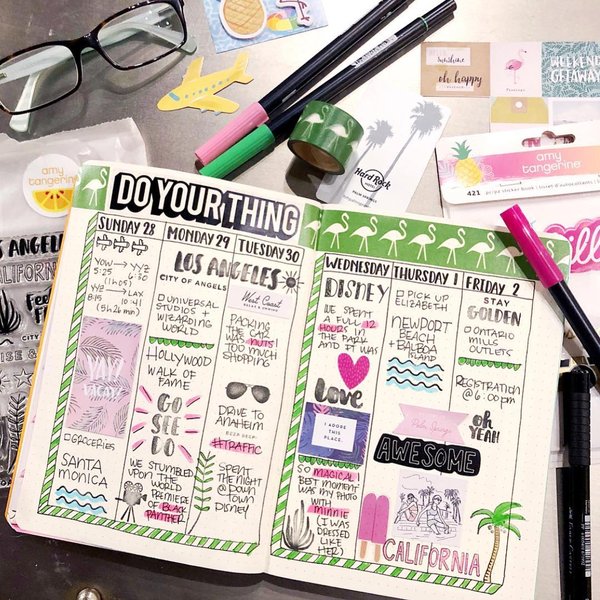 DO YOUR THING
SUNDAY 28
MONDAY 29
TUESDAY 30
YOW → YYZ
5:25 6:30
(1h05)
YYZ → LAX
8:15 10:41
(5h 26min)
GROCERIES
SANTA
MONICA
LOS ANGELES
CITY OF ANGELS
UNIVERSAL
STUDIOS +
WIZARDING
WORLD
HOLLYWOOD
WALK OF
FAME
GO
SEE
DO
WE STUMBLED
UPON THE
WORLD
PREMIERE
OF BLACK
PANTHER
West Coast
PACKING
THE CAR
WAS NUTS!
TOO MUCH
SHOPPING
DRIVE TO
ANAHEIM
BEEP BEEP
#TRAFFIC
SPENT
THE NIGHT
@ DOWN
TOWN
DISNEY
WEDNESDAY
THURSDAY 1
FRIDAY 2
DISNEY
WE SPENT
A FULL 12
HOURS IN
THE PARK
AND IT WAS
Love
I ADORE THIS
PLACE.
SO MAGICAL!
BEST MOMENT
WAS MY PHOTO
WITH
MINNIE
(I WAS
DRESSED
LIKE
HER)
PICK UP
ELIZABETH
NEWPORT
BEACH
+ BALBOA
ISLAND
Palm Springs
OH
YEAH
AWESOME
CALIFORNIA
STAY
GOLDEN
ONTARIO
MILLS
OUTLETS
REGISTRATION
@ 6:00 pm
amy
tangerine
LOS ANGELES
CALIFORNIA
Hard Rock
HOTEL
PALM SPRINGS
sunshine
oh happy
WEEKEND
GETAWAY
amy
tangerine
421